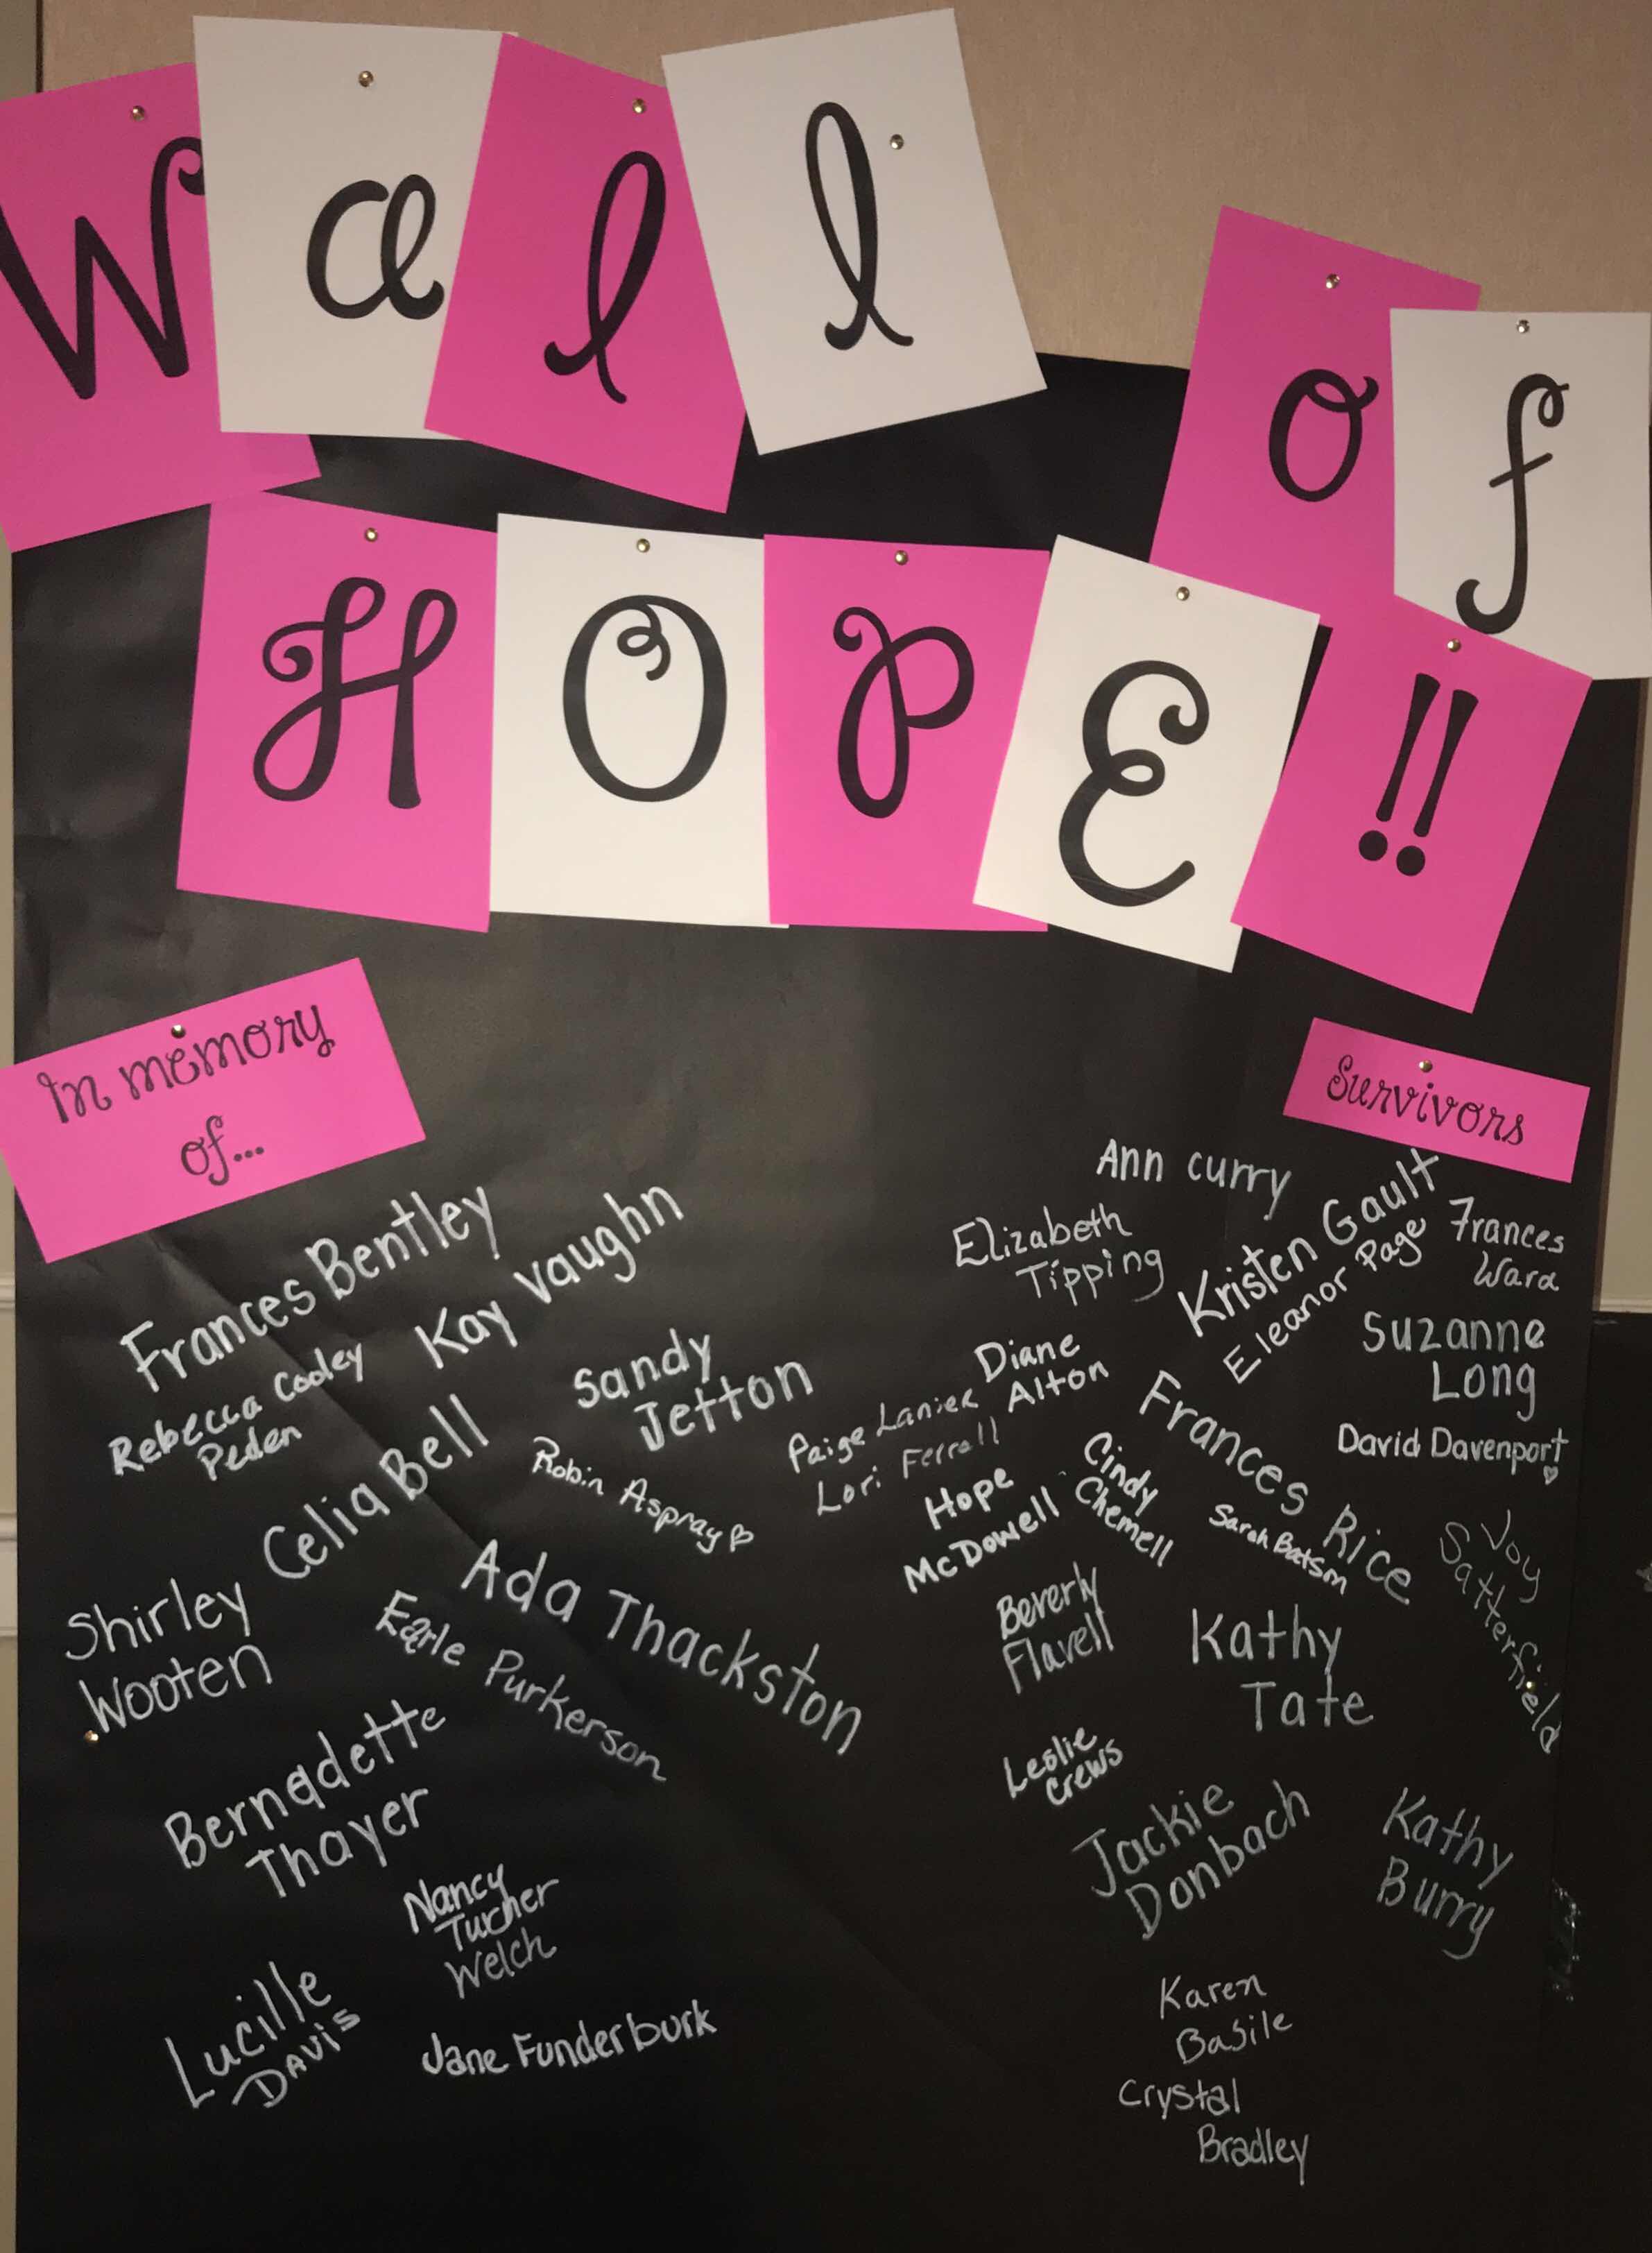 Wall of
HOPE!!
In memory
of...
Frances Bentley
Kay Vaughn
Rebecca Cooley
Peden
Sandy
Jetton
Celia Bell
Robin Aspray
Shirley
Wooten
Ada Thackston
Earle Purkerson
Bernadette
Thayer
Nancy
Turner
Welch
Lucille
DAVIS
Jane Funderburk
Survivors
Ann curry
Elizabeth
Tipping
Kristen Gault
Eleanor Page
Frances
Ward
Suzanne
Long
Diane
Alton
Paige Lanier
Lori Ferrell
Frances Rice
David Davenport
Hope
McDowell
Cindy
Chemell
Sarah Batson
Joy
Satterfield
Beverly
Flavell
Kathy
Tate
Leslie
Crews
Jackie
Donbach
Kathy
Burry
Karen
Basile
Crystal
Bradley